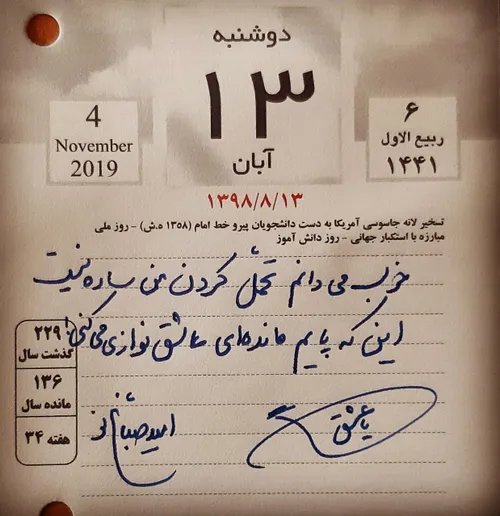 دوشنبه
۱۳
آبان
4
November
2019
۶
ربیع الاول
۱۴۴۱
۱۳۹۸/۸/۱۳
تسخیر لانه جاسوسی آمریکا به دست دانشجویان پیرو خط امام (۱۳۵۸ ه.ش) - روز ملی
مبارزه با استکبار جهانی - روز دانش آموز
خوب می دانم تحمّل کردن من ساده نیست
این که پایم مانده‌ای عاشق نوازی می کنی!
۲۲۹
گذشت سال
۱۳۶
مانده سال
هفته ۳۴
یا عشق
امید صباغ نو